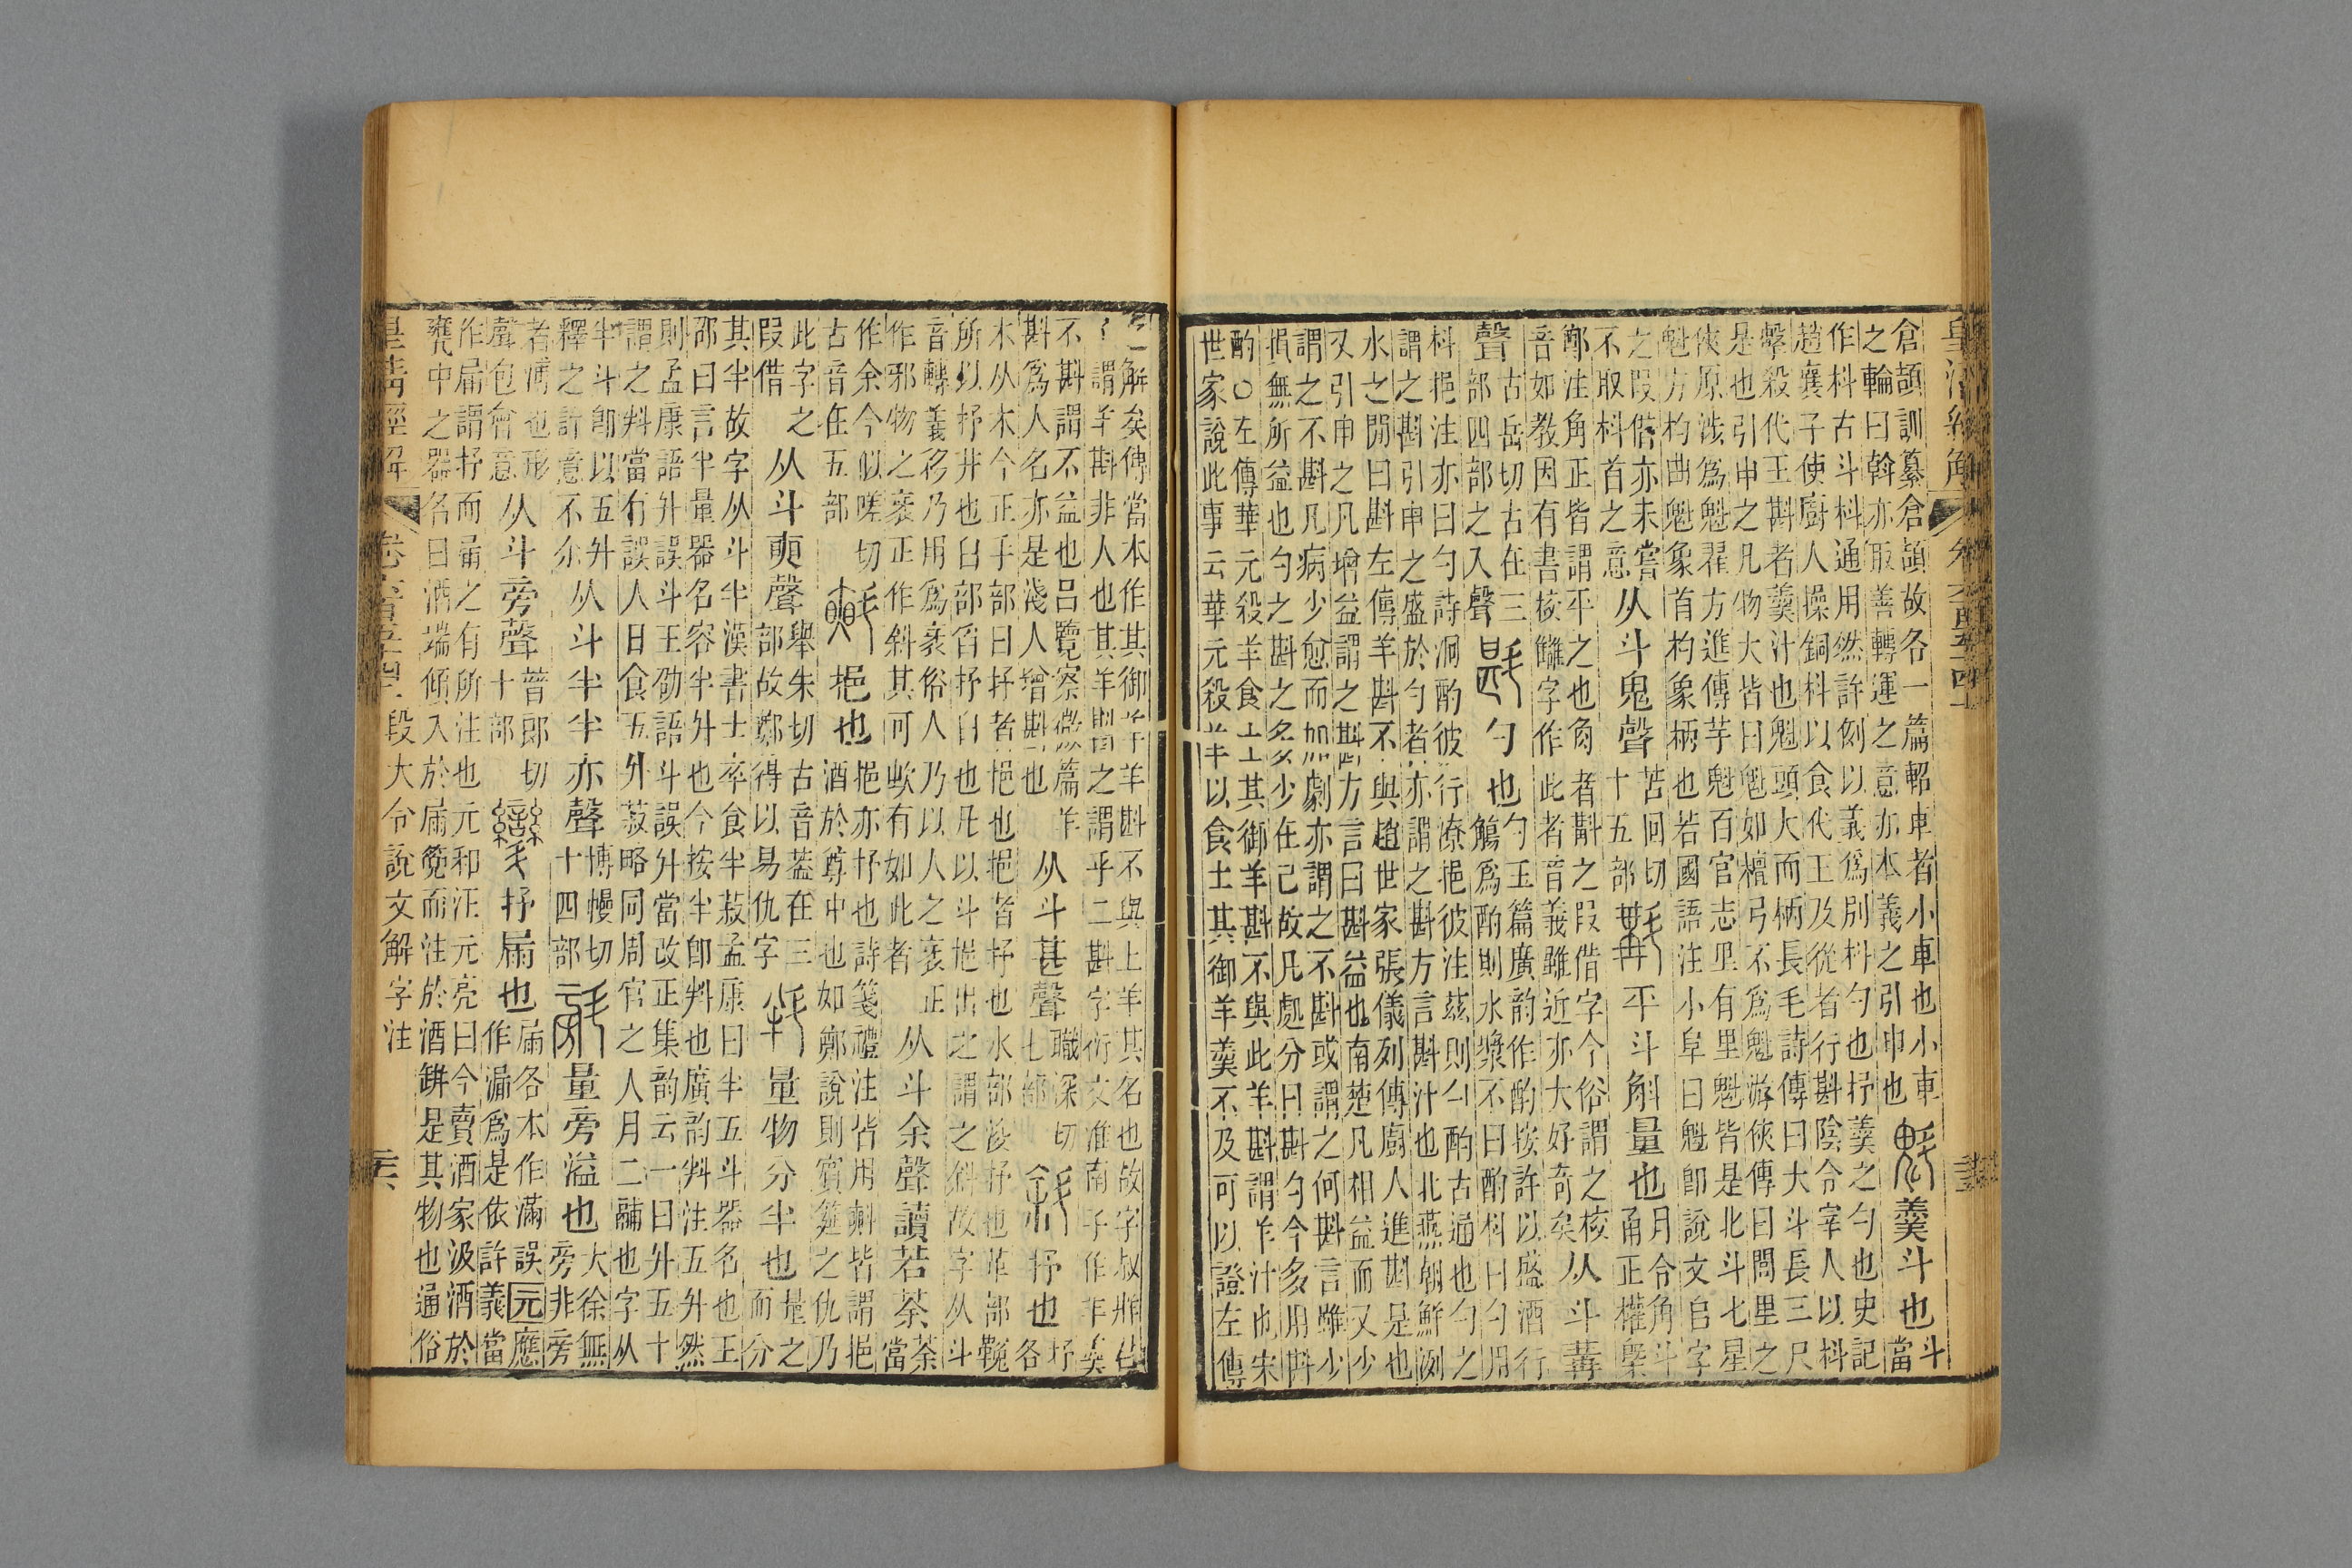 皇清經解 卷六百五十四上
倉頡訓纂倉頡故各一篇軺車者小車也小車
之輪曰斡亦取善轉運之意亦本義之引申也
魁羹斗也
斗
當
作枓古斗枓通用然許例以義爲別枓勺也抒羹之勺也史記
趙襄子使廚人操銅枓以食代王及從者行斟陰令宰人以枓
擊殺代王斟者羹汁也魁頭大而柄長毛詩傳曰大斗長三尺
是也引申之凡物大皆曰魁如檀弓不爲魁游俠傳曰閭里之
俠原涉爲魁翟方進傳芋魁百官志里有里魁皆是北斗七星
魁方杓曲魁象首杓象柄也若國語注小阜曰魁卽說文𠂤字
之叚借亦未嘗
不取枓首之意
从斗鬼聲
苦回切
十五部
斠平斗斛量也
月令角斗
甬正權槩
鄭注角正皆謂平之也角者斠之叚借字今俗謂之校
音如教因有書校讎字作此者音義雖近亦大好奇矣
从斗冓
聲
古岳切古在三
部四部之入聲
斟勺也
勺玉篇廣韵作酌按許以盛酒行
觴爲酌則水漿不曰酌枓曰勺用
枓挹注亦曰勺詩泂酌彼行潦挹彼注茲則勺酌古通也勺之
謂之斟引申之盛於勺者亦謂之斟方言斟汁也北燕朝鮮洌
水之閒曰斟左傳羊斟不與趙世家張儀列傳廚人進斟是也
又引申之凡增益謂之斟方言曰斟益也南楚凡相益而又少
謂之不斟凡病少愈而加劇亦謂之不斟或謂之何斟言雖少
損無所益也勺之斟之多少在己故凡處分曰斟勺今多用斟
酌○左傳華元殺羊食士其御羊斟不與此羊斟謂羊汁也宋
世家說此事云華元殺羊以食士其御羊羹不及可以證左傳
之解矣傳當本作其御羊羊斟不與上羊其名也故字叔牂
謂羊斟非人也其羊斟之謂乎二斟字衍文淮南子作羊羹
不斟謂不益也呂覽察微篇作
斟爲人名亦是淺人增斟也
从斗甚聲
職深切
七部
斜抒也
抒
各
木从木今正手部曰抒者挹也挹者抒也水部浚抒也革部䩩
所以抒井也臼部舀抒臼也凡以斗挹出之謂之斜故字从斗
音轉義移乃用爲衺俗人乃以人之衺正
作邪物之衺正作斜其可欸有如此者
从斗余聲讀若荼
荼
當
作余今似嗟切
古音在五部
㪺挹也
挹亦抒也詩箋禮注皆用㪺皆謂挹
酒於尊中也如鄭說則賓筵之仇乃
此字之
叚借
从斗聲
舉朱切古音葢在三
部故鄭得以易仇字
料量物分半也
量之
而分
其半故字从斗半漢書士卒食半菽孟康曰半五斗器名也王
邵曰言半量器名容半升也今按半卽料也廣韵料注五升然
則孟康語升誤斗王劭語斗誤升當改正集韵云一曰升五十
謂之料當有誤人日食五升菽略同周官之人月二鬴也字从
半斗卽以五升
釋之許意不尒
从斗半半亦聲
博幔切
十四部
量旁溢也
大徐無
旁非旁
者溥也形
聲包會意
从斗旁聲
普郎切
十部
抒屚也
屚各本作滿誤元應
作漏爲是依許義當
作屚謂抒而屚之有所注也元和汪元亮曰今賣酒家汲酒於
甕中之器名曰酒端傾入於屚㼝而注於酒缾是其物也通俗
皇清經解 卷六百五十四上 段大令說文解字注